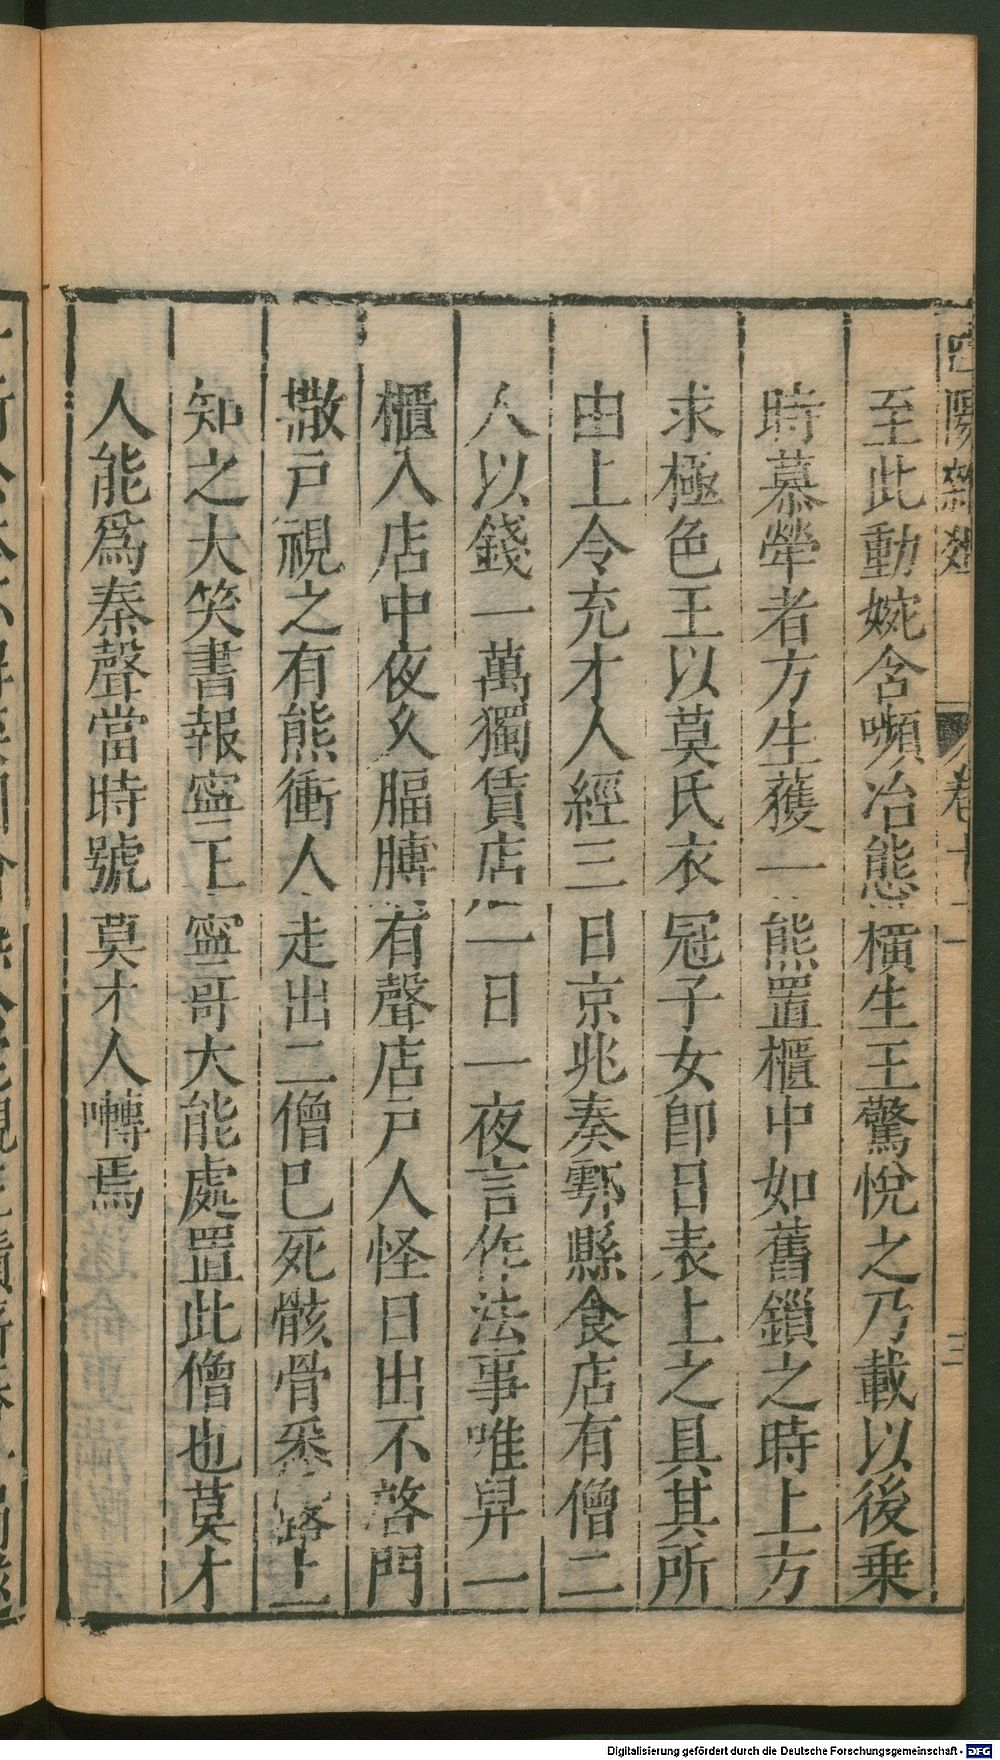 至此動婉含嚬冶態橫生王驚悅之乃載以後乗
時慕犖者方生獲一熊置櫃中如舊鎖之時上方
求極色王以莫氏衣冠子女卽日表上之具其所
由上令充才人經三日京兆奏鄠縣食店有僧二
人以錢一萬獨賃店一日一夜言作法事唯舁一
櫃入店中夜久腷膊有聲店戸人怪日出不啓門
撤戸視之有熊衝人走出二僧巳死骸骨悉露上
知之大笑書報寧王寧哥大能處置此僧也莫才
人能爲秦聲當時號莫才人囀焉
陽雜
卷十
三
Digitalisierung gefördert durch die Deutsche Forschungsgemeinschaft - DFG